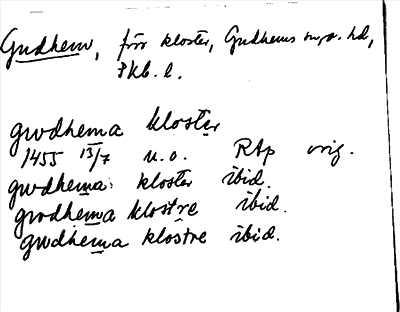 Gudhem, förr kloster, Gudhems sn o. hd,
Skb. l.
gwdhema kloster
1455 13/7 u.o. RAp orig.
gwdhema kloster ibid.
gwodhema klostre ibid.
gwdhema klostre ibid.